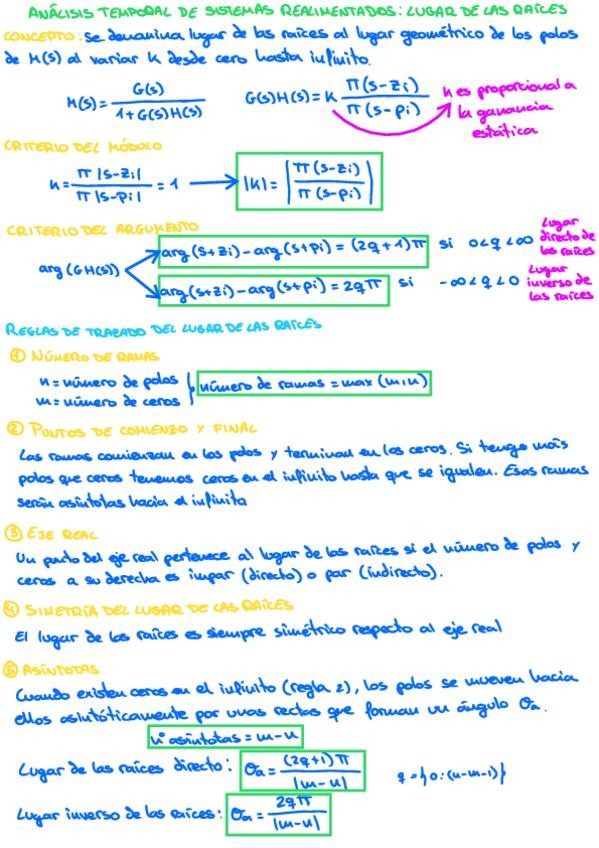 ANÁLISIS TEMPORAL DE SISTEMAS REALIMENTADOS: LUGAR DE LAS RAÍCES
CONCEPTO: Se denomina lugar de las raíces al lugar geométrico de los polos
de M(s) al variar k desde cero hasta infinito.
M(s) = G(s) / 1+G(s)H(s) G(s)H(s) = k π(s-zi) / π(s-pi) k es proporcional a
la ganancia
estática
CRITERIO DEL MÓDULO
k = π|s-zi| / π|s-pi| = 1 → |k| = |π(s-zi) / π(s-pi)|
CRITERIO DEL ARGUMENTO
arg(GH(s)) arg(s+zi) - arg(s+pi) = (2q+1)π si 0<q<∞ Lugar directo de las raíces
arg(s+zi) - arg(s+pi) = 2qπ si -∞<q<0 Lugar inverso de las raíces
REGLAS DE TRAZADO DEL LUGAR DE LAS RAÍCES
① NÚMERO DE RAMAS
n = número de polos
m = número de ceros } número de ramas = max(m,n)
② PUNTOS DE COMIENZO Y FINAL
Las ramas comienzan en los polos y terminan en los ceros. Si tengo más
polos que ceros tenemos ceros en el infinito hasta que se igualen. Esas ramas
serán asíntotas hacia el infinito
③ EJE REAL
Un punto del eje real pertenece al lugar de las raíces si el número de polos y
ceros a su derecha es impar (directo) o par (indirecto).
④ SIMETRÍA DEL LUGAR DE LAS RAÍCES
El lugar de las raíces es siempre simétrico respecto al eje real
⑤ ASÍNTOTAS
Cuando existen ceros en el infinito (regla 2), los polos se mueven hacia
ellos asintóticamente por unas rectas que forman un ángulo θa.
nº asíntotas = m-n
Lugar de las raíces directo: θa = (2q+1)π / |m-n| q = {0:(n-m-1)}
Lugar inverso de las raíces: θa = 2qπ / |m-n|